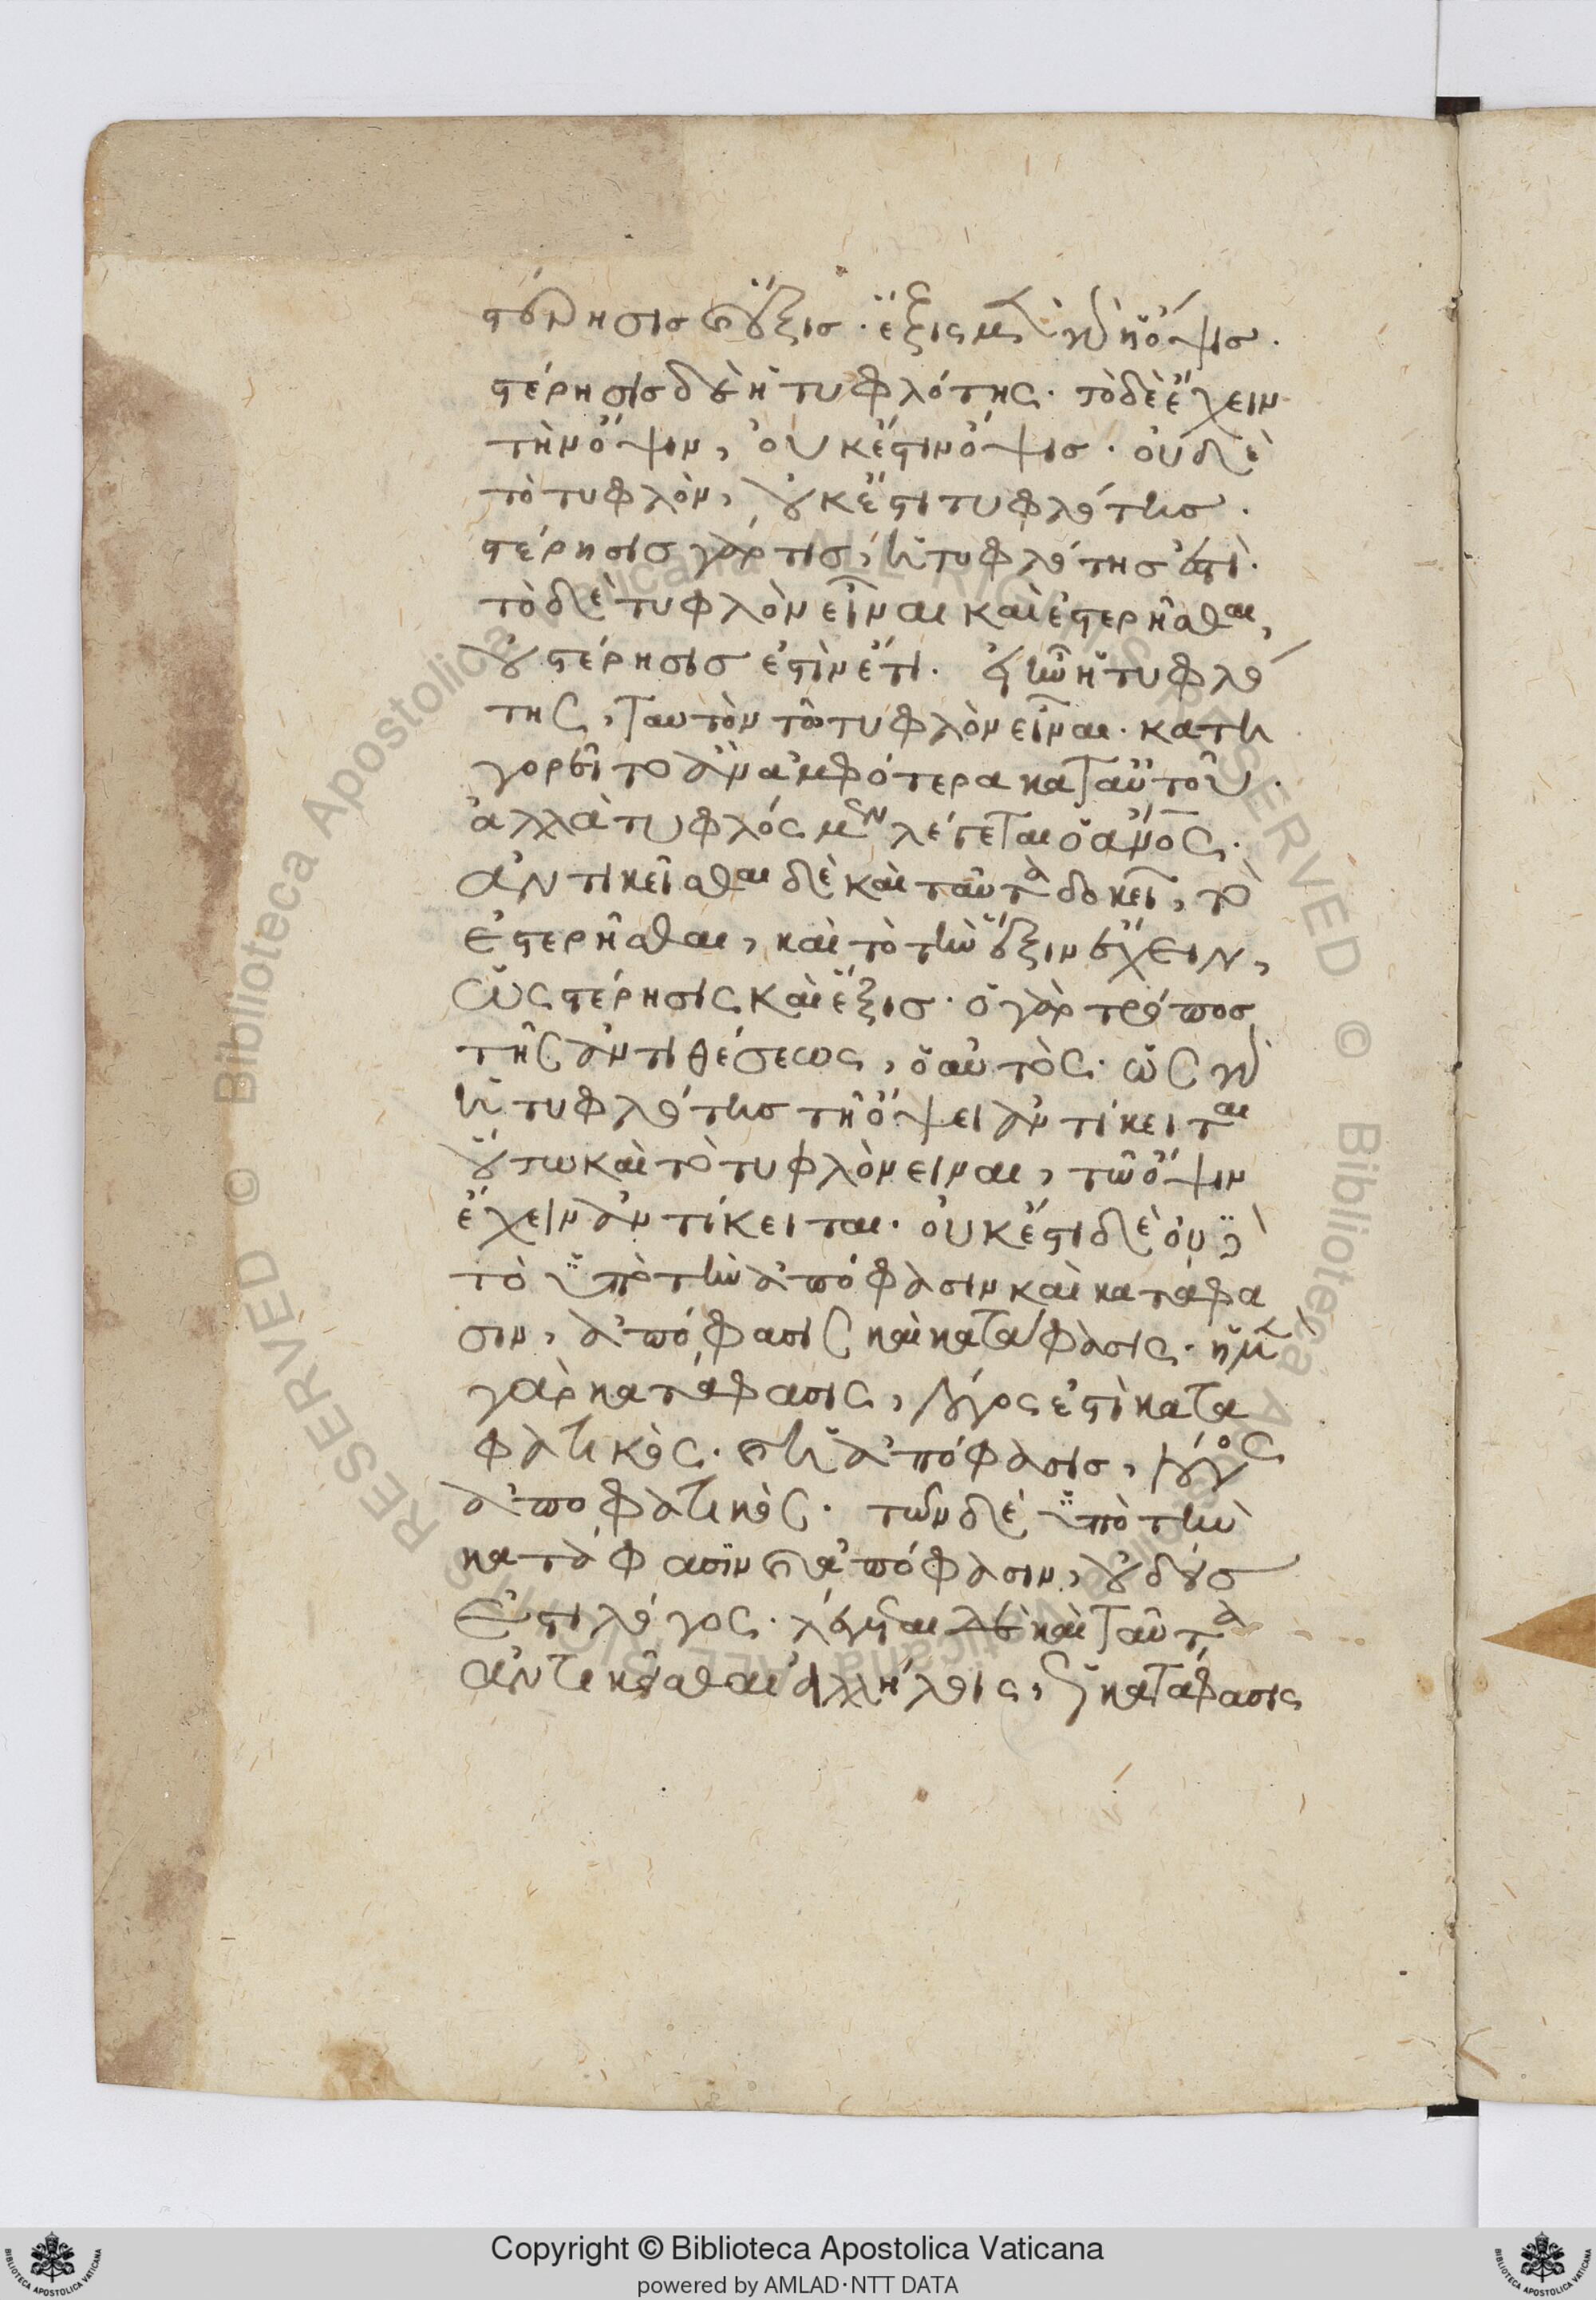 στέρησις καὶ ἕξις· ἕξις μὲν γὰρ ἡ ὄψις·
στέρησις δὲ ἡ τυφλότης· τὸ δὲ ἔχειν
τὴν ὄψιν, οὐκ ἔστιν ὄψις· οὐδὲ
τὸ τυφλὸν, οὐκ ἔστι τυφλότης·
στέρησις γάρ τις, ἡ τυφλότης ἐστί·
τὸ δὲ τυφλὸν εἶναι καὶ ἐστερῆσθαι,
οὐ στέρησις ἐστὶν ἔτι· εἰ ἦν ἡ τυφλό
της, ταυτὸν τῶ τυφλὸν εἶναι· κατη
γορεῖτο ἂν ἀμφότερα κατ' αὐτοῦ·
ἀλλὰ τυφλός μὲν λέγεται ὁ ἄνος·
ἀντικεῖσθαι δὲ καὶ ταῦτα δοκεῖ, τὸ
ἐστερῆσθαι, καὶ τὸ τὴν ἕξιν ἔχειν,
ὡς στέρησις καὶ ἕξις· ὁ γὰρ τρόπος
τῆς ἀντιθέσεως, ὁ αὐτὸς· ὡς γὰρ
ἡ τυφλότης τῆ ὄψει ἀντίκειται
οὕτω καὶ τὸ τυφλὸν ειναι, τῶ ὄψιν
ἔχειν ἀντίκειται· οὐκ ἔστι δὲ οὐδὲ
τὸ ὑπὸ τὴν ἀπόφασιν καὶ κατάφα
σιν, ἀπόφασις καὶ κατάφασις· ἡ μὲν
γὰρ κατάφασις, λόγος ἐστὶ κατα
φατικὸς· καὶ ἡ ἀπόφασις, λόγος
ἀποφατικὸς· τῶν δὲ ὑπὸ τὴν
κατάφασιν καὶ ἀπόφασιν, οὐδείς
ἐστι λόγος· λέγεται δὲ καὶ ταῦτα
ἀντικεῖσθαι ἀλλήλοις, ὡς κατάφασις
Copyright © Biblioteca Apostolica Vaticana
powered by AMLAD·NTT DATA